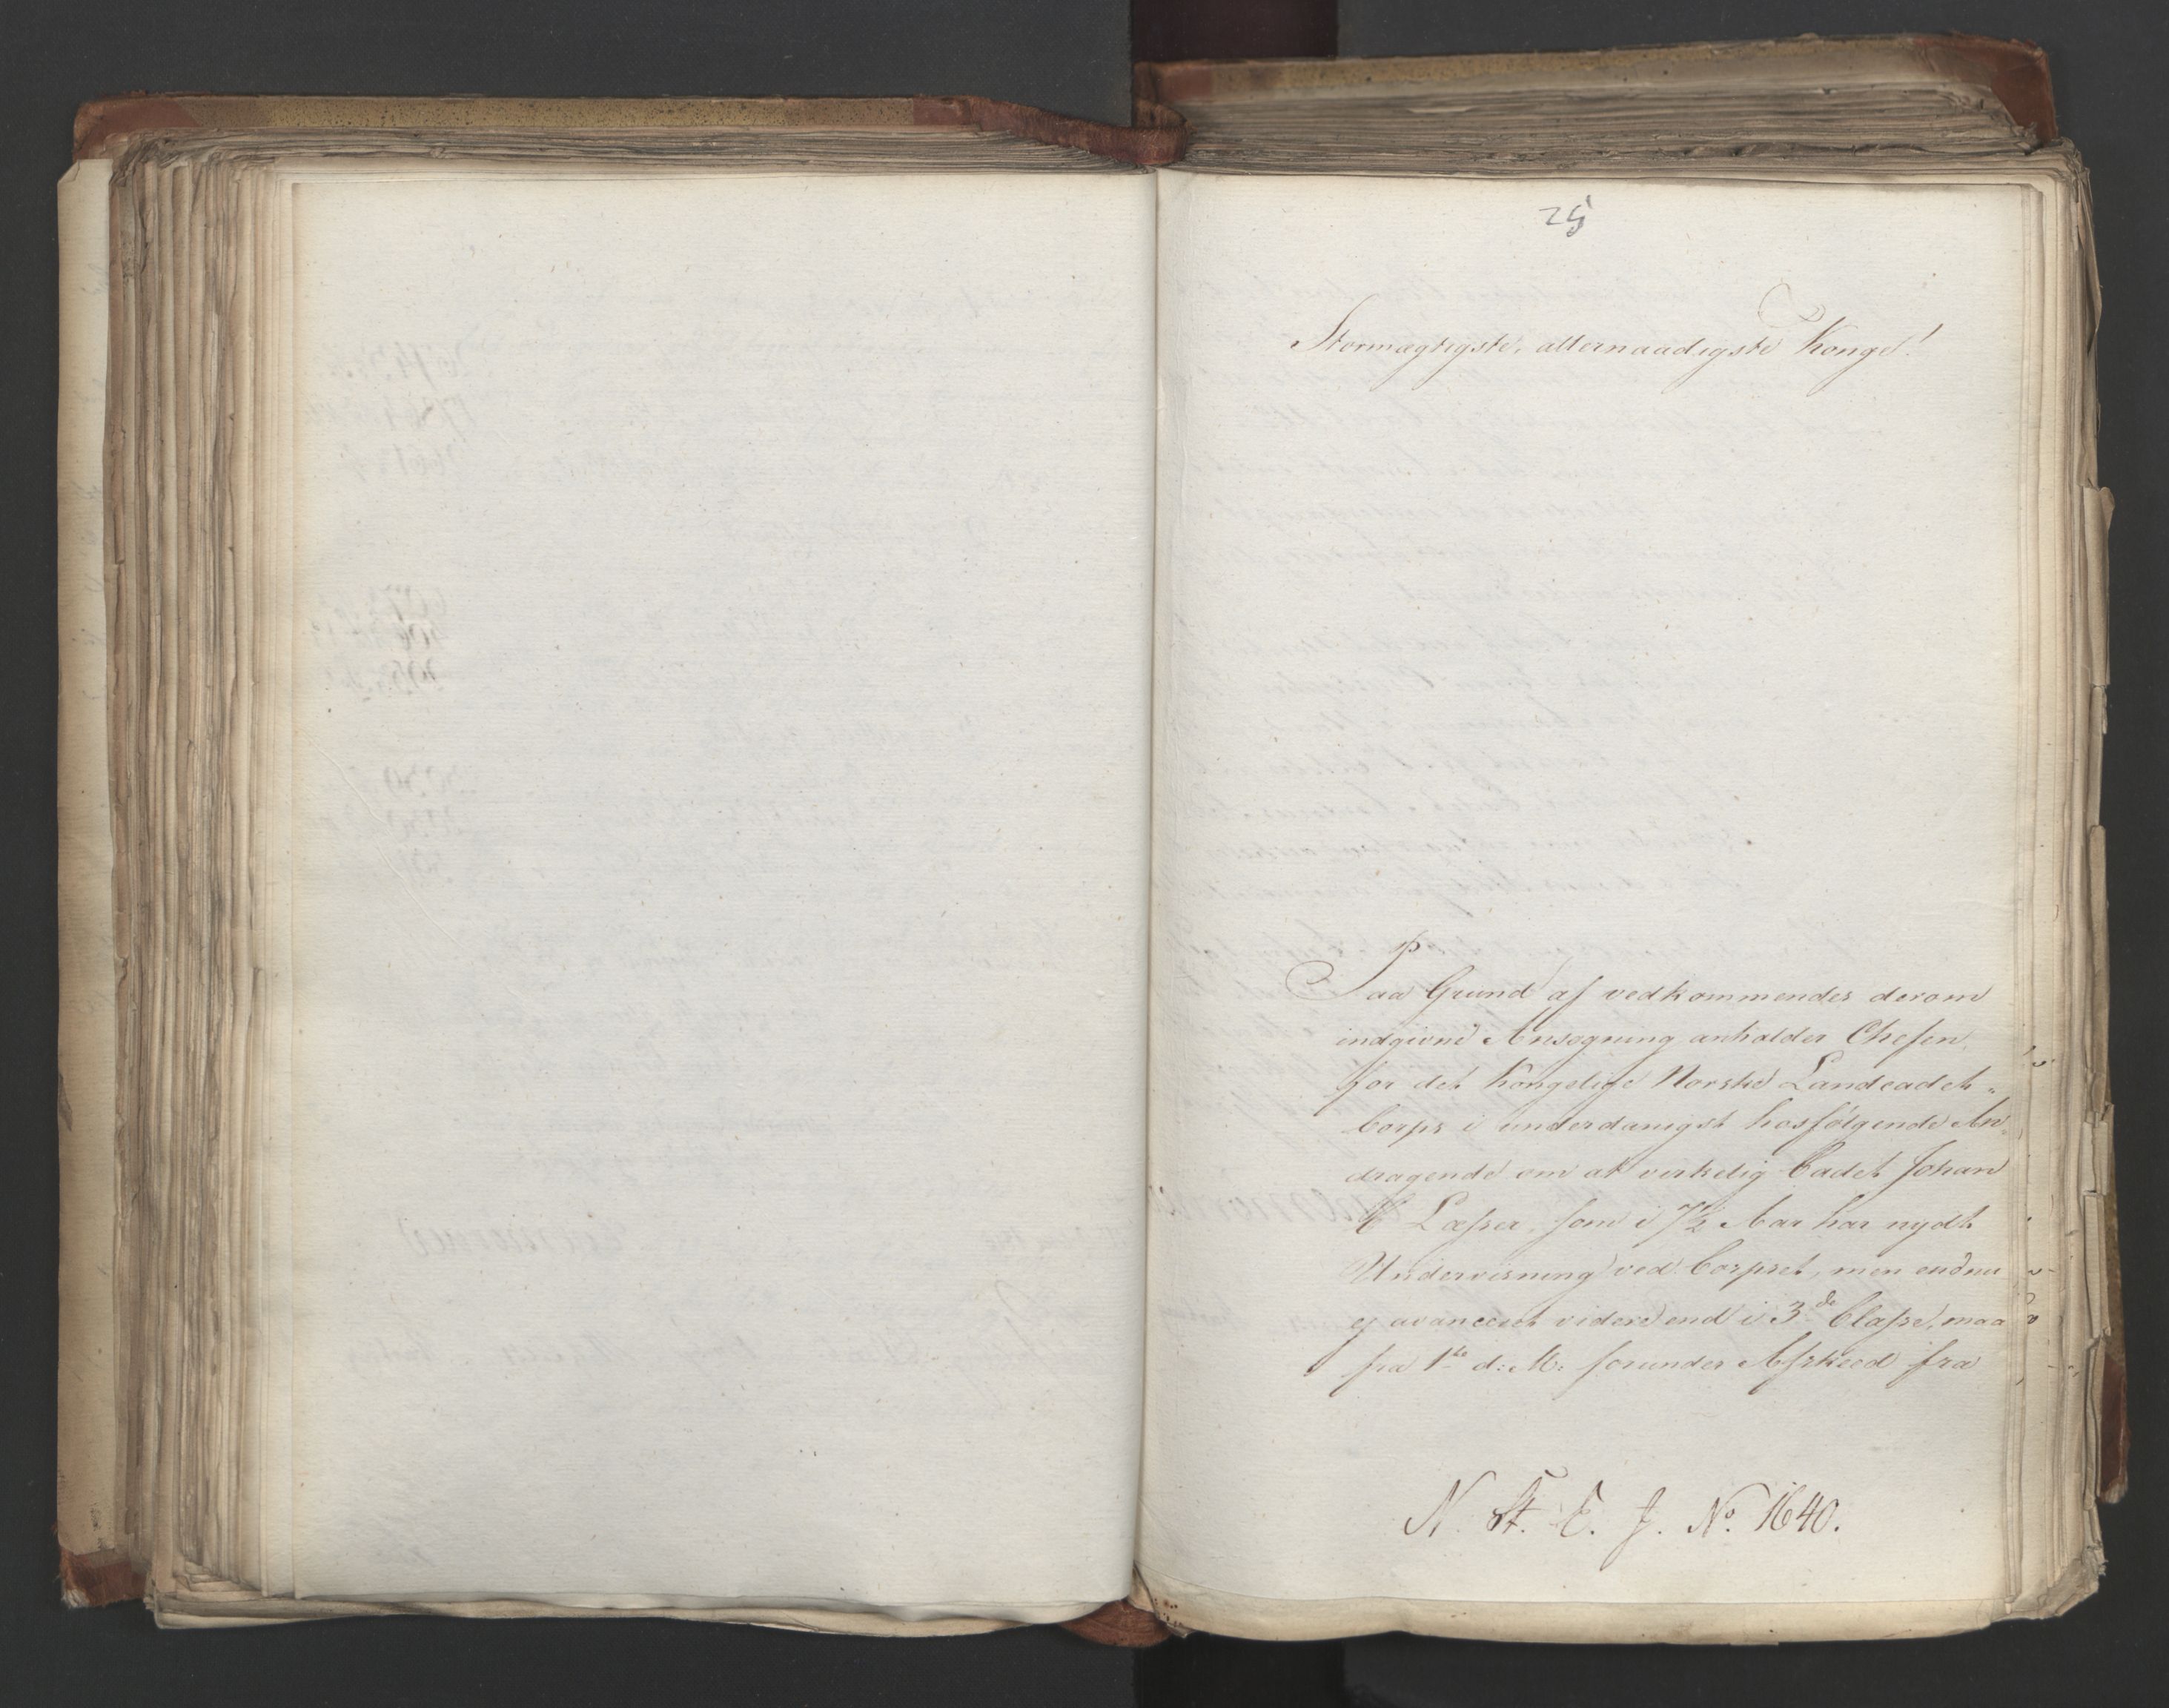 25
Stormægtigste, allernaadigste Konge!
Paa Grund af vedkommendes derom
indgivne Ansøgning anholder Chefen
for det Kongelige Norske Landcadet-
Corps i underdanigst hosfølgende An-
dragende om at virkelig Cadet Johan
Læsser, som i 7½ Aar har nydt
Underviisning ved Corpset, men endnu
ej avanceret videre end i 3de Classe, maa
fra 1ste d: M: forundes Afskeed fra
N. St. E. J. No. 1640.